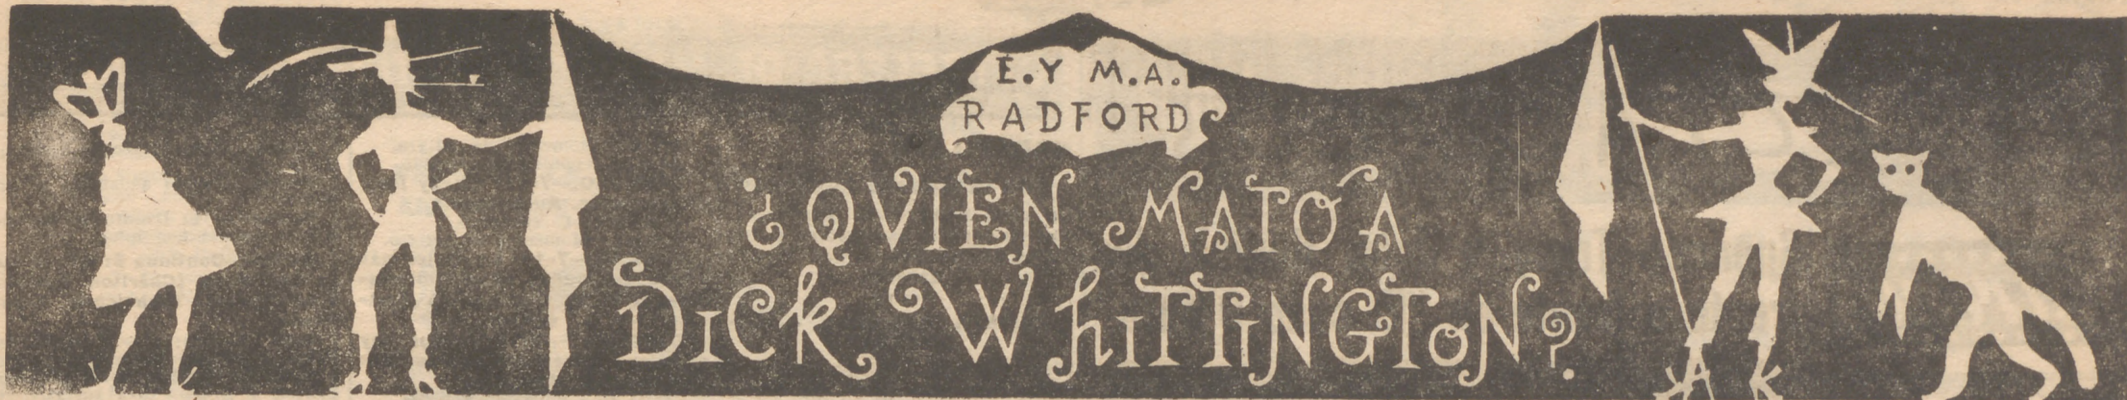 E. Y M.A.
RADFORD
¿QVIEN MATÓ A
DICK WHITTINGTON?